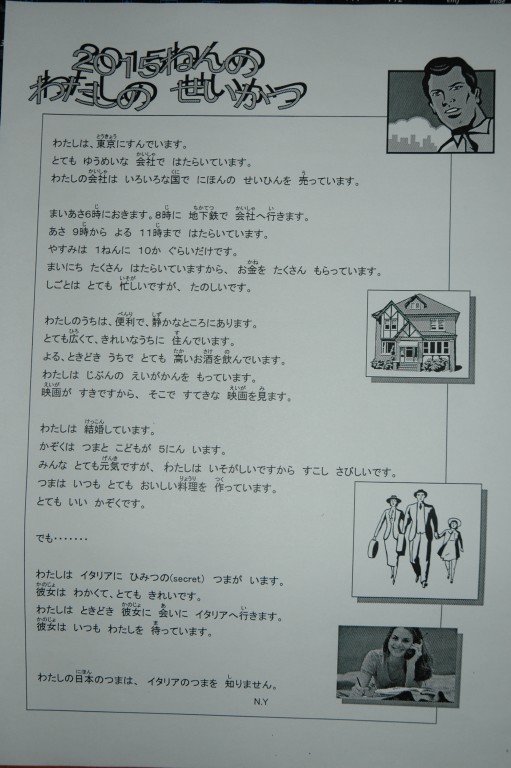 2015ねんの
わたしの せいかつ
わたしは、東京にすんでいます。
とても ゆうめいな 会社で はたらいています。
わたしの会社は いろいろな国で にほんの せいひんを 売っています。
まいあさ6時におきます。8時に 地下鉄で 会社へ行きます。
あさ 9時から よる 11時まで はたらいています。
やすみは 1ねんに 10か ぐらいだけです。
まいにち たくさん はたらいていますから、 お金を たくさん もらっています。
しごとは とても 忙しいですが、 たのしいです。
わたしのうちは、便利で、静かなところにあります。
とても広くて、きれいなうちに 住んでいます。
よる、ときどき うちで とても 高いお酒を飲んでいます。
わたしは じぶんの えいがかんを もっています。
映画が すきですから、 そこで すてきな 映画を見ます。
わたしは 結婚しています。
かぞくは つまと こどもが 5にん います。
みんな とても元気ですが、 わたしは いそがしいですから すこし さびしいです。
つまは いつも とても おいしい料理を 作っています。
とても いい かぞくです。
でも・・・・・・・
わたしは イタリアに ひみつの(secret) つまが います。
彼女は わかくて、とても きれいです。
わたしは ときどき 彼女に 会いに イタリアへ行きます。
彼女は いつも わたしを 待っています。
わたしの日本のつまは、 イタリアのつまを 知りません。
N.Y